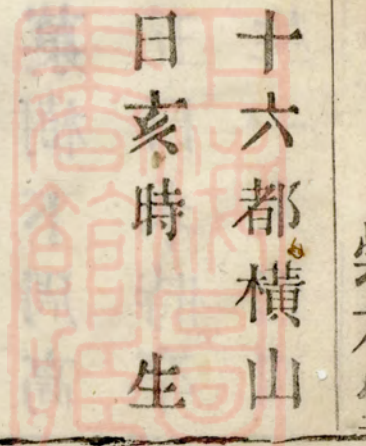 十六都橫山
日亥時 生